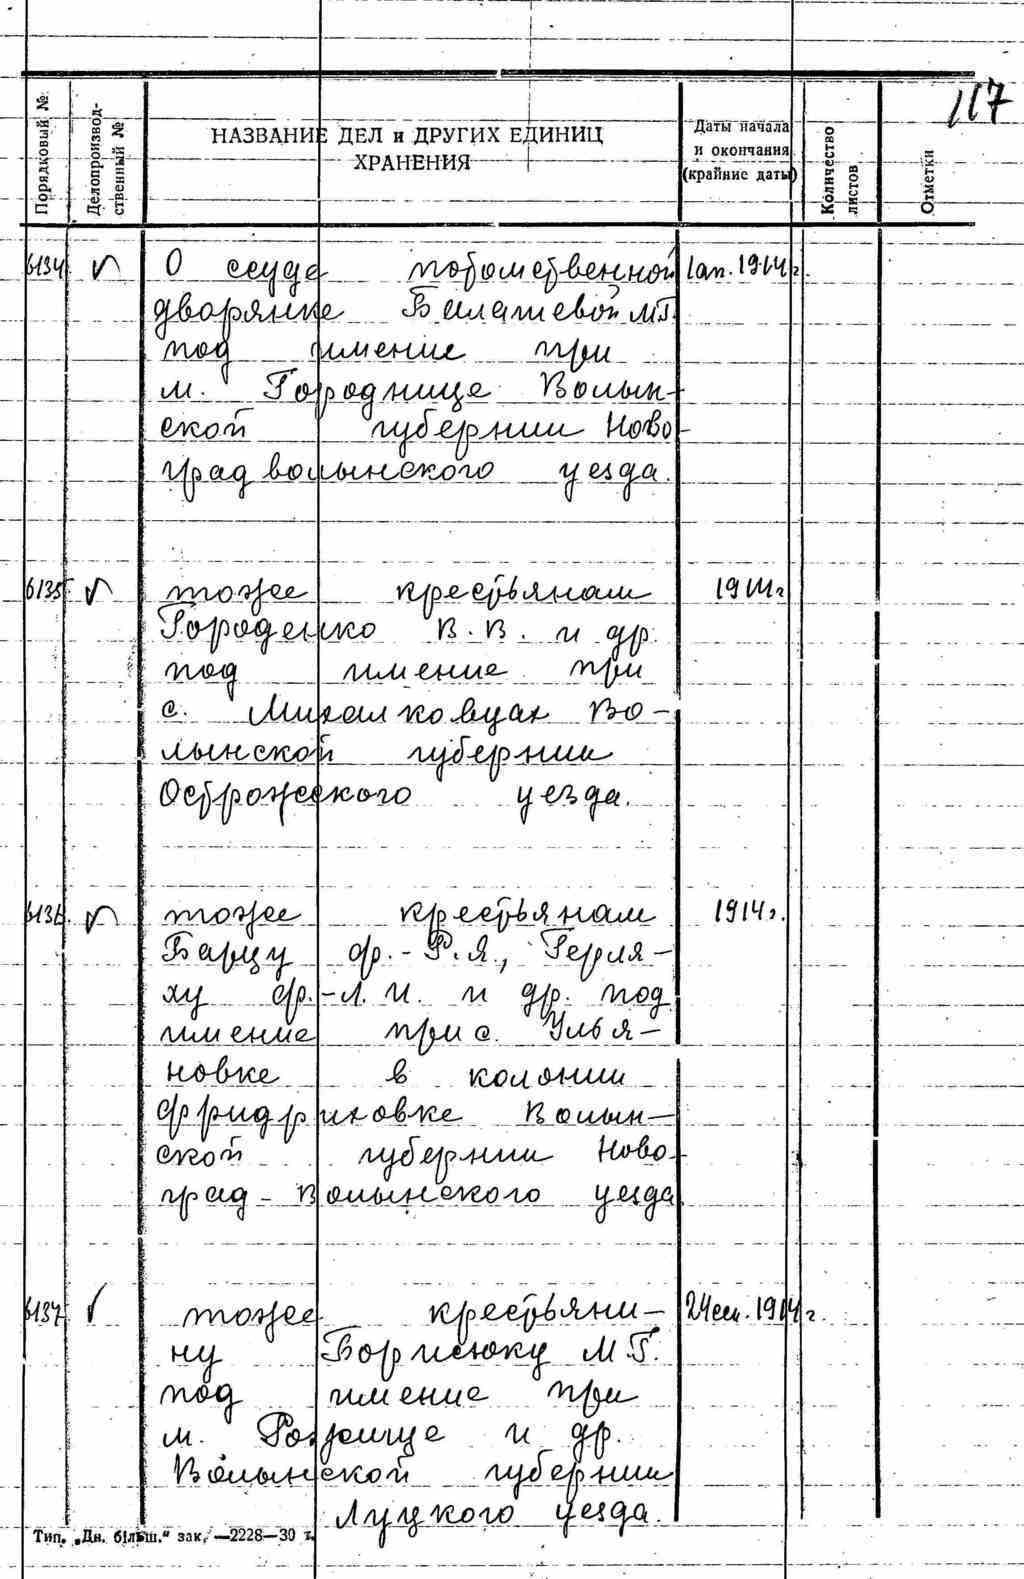 117
Порядковый №
Делопроизвод-
ственный №
НАЗВАНИЕ ДЕЛ и ДРУГИХ ЕДИНИЦ
ХРАНЕНИЯ
Даты начала
и окончания
(крайние даты)
Количество
листов
Отметки
6134 О ссуде потомственной 1 ап. 1914 г.
дворянке М.Г.
под имение при
м. Городнице Волын-
ской губернии Ново
градволынского уезда.
6135 тоже крестьянам 1914 г
Городенко В. В. и др.
под имение при
с. Михалковцах Во-
лынской губернии
Острожского уезда.
6136 тоже крестьянам 1914 г.
Барцу Ф.-Р. Я., Герля-
ху Ф.-Л. И. и др. под
имение при с. Улья-
новке в колонии
Фридриховке Волын-
ской губернии Ново-
град-Волынского уезда
6137 тоже крестьяни- 24 сен. 1914 г.
ну Борисюку М.Г.
под имение при
м. Рожище и др.
Волынской губернии
Луцкого уезда.
Тип. „Дн. більш." зак. —2228—30 т.